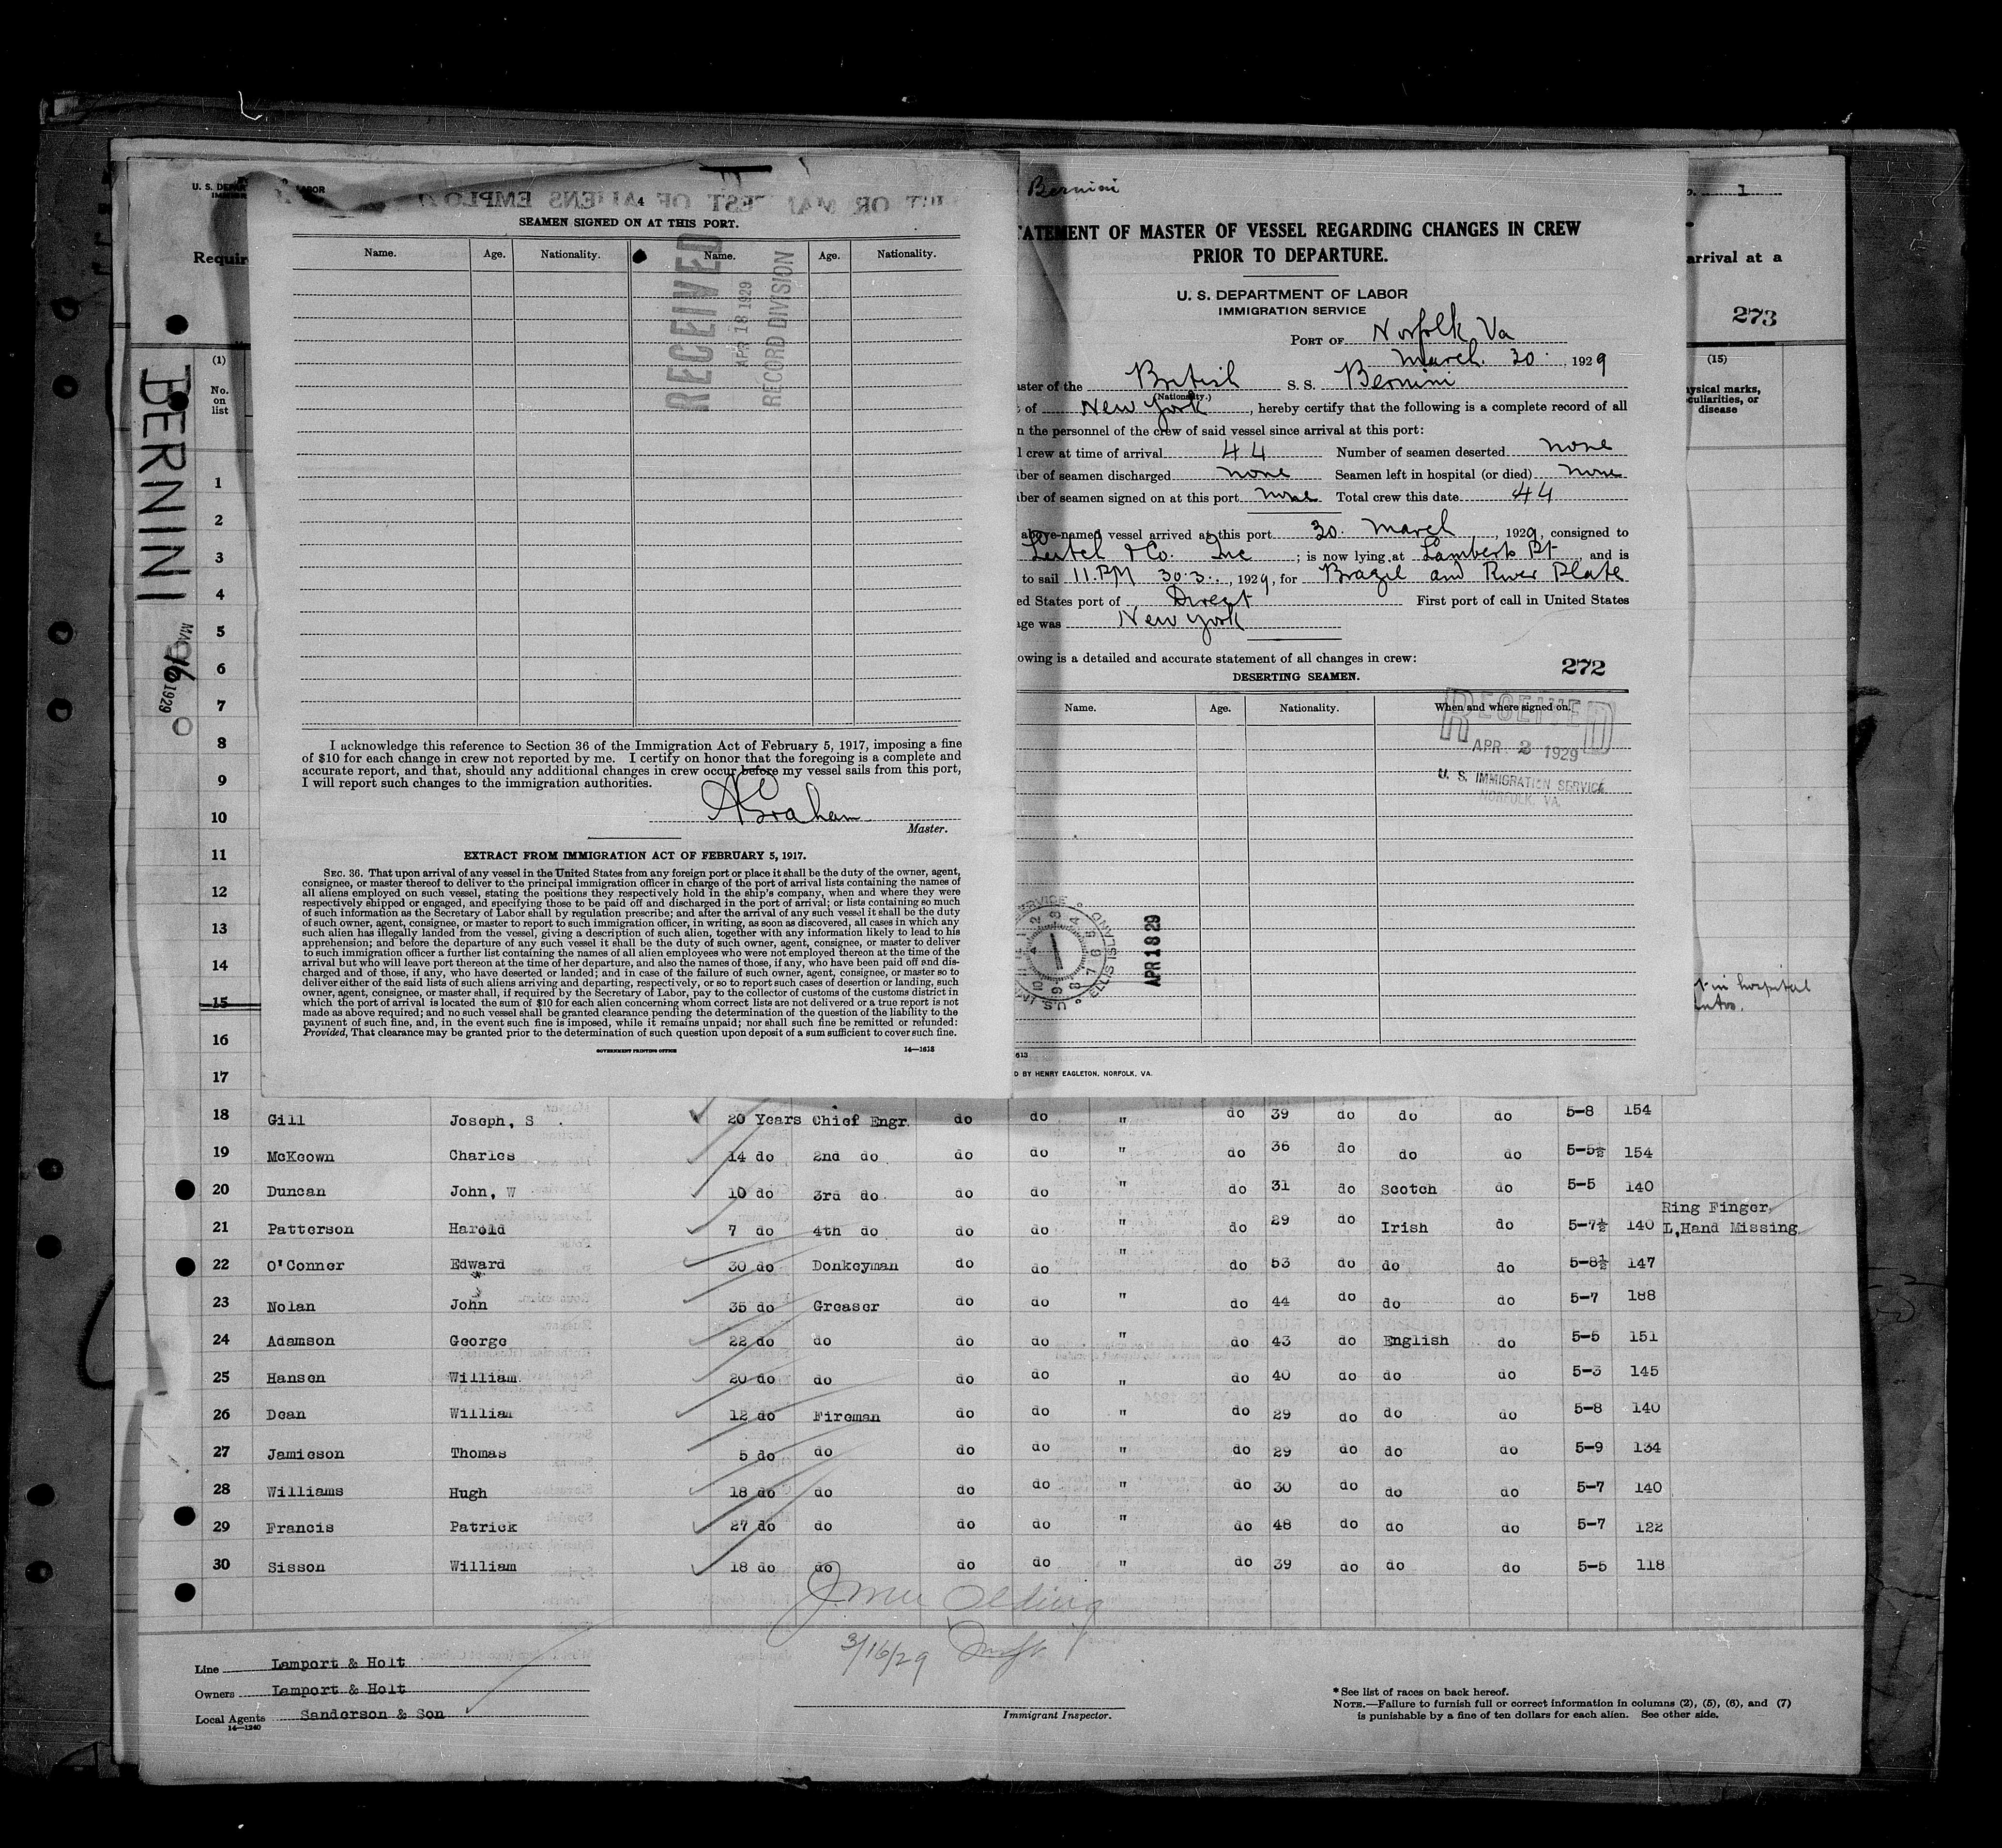 U. S. DEPAR LABOR
Requir
BERNINI
MAR 16 1929
(1)
No.
on
list
1
2
3
4
5
6
7
8
9
10
11
12
13
14
15
16
17
4
SEAMEN SIGNED ON AT THIS PORT.
Name. Age. Nationality. Name. Age. Nationality.
RECEIVED
APR 18 1929
RECORD DIVISION
I acknowledge this reference to Section 36 of the Immigration Act of February 5, 1917, imposing a fine
of $10 for each change in crew not reported by me. I certify on honor that the foregoing is a complete and
accurate report, and that, should any additional changes in crew occur before my vessel sails from this port,
I will report such changes to the immigration authorities.
A Graham
Master.
EXTRACT FROM IMMIGRATION ACT OF FEBRUARY 5, 1917.
SEC. 36. That upon arrival of any vessel in the United States from any foreign port or place it shall be the duty of the owner, agent,
consignee, or master thereof to deliver to the principal immigration officer in charge of the port of arrival lists containing the names of
all aliens employed on such vessel, stating the positions they respectively hold in the ship's company, when and where they were
respectively shipped or engaged, and specifying those to be paid off and discharged in the port of arrival; or lists containing so much
of such information as the Secretary of Labor shall by regulation prescribe; and after the arrival of any such vessel it shall be the duty
of such owner, agent, consignee, or master to report to such immigration officer, in writing, as soon as discovered, all cases in which any
such alien has illegally landed from the vessel, giving a description of such alien, together with any information likely to lead to his
apprehension; and before the departure of any such vessel it shall be the duty of such owner, agent, consignee, or master to deliver
to such immigration officer a further list containing the names of all alien employees who were not employed thereon at the time of the
arrival but who will leave port thereon at the time of her departure, and also the names of those, if any, who have been paid off and dis-
charged and of those, if any, who have deserted or landed; and in case of the failure of such owner, agent, consignee, or master so to
deliver either of the said lists of such aliens arriving and departing, respectively, or so to report such cases of desertion or landing, such
owner, agent, consignee, or master shall, if required by the Secretary of Labor, pay to the collector of customs of the customs district in
which the port of arrival is located the sum of $10 for each alien concerning whom correct lists are not delivered or a true report is not
made as above required; and no such vessel shall be granted clearance pending the determination of the question of the liability to the
payment of such fine, and, in the event such fine is imposed, while it remains unpaid; nor shall such fine be remitted or refunded:
Provided, That clearance may be granted prior to the determination of such question upon deposit of a sum sufficient to cover such fine.
GOVERNMENT PRINTING OFFICE 14—1613
Bernini
TATEMENT OF MASTER OF VESSEL REGARDING CHANGES IN CREW
PRIOR TO DEPARTURE.
U. S. DEPARTMENT OF LABOR
IMMIGRATION SERVICE
PORT OF Norfolk Va
March. 30. 1929
aster of the British S. S. Bernini
(Nationality.)
of New York, hereby certify that the following is a complete record of all
n the personnel of the crew of said vessel since arrival at this port:
l crew at time of arrival 44 Number of seamen deserted none
ber of seamen discharged none Seamen left in hospital (or died) none
ber of seamen signed on at this port none Total crew this date 44
above-named vessel arrived at this port 30. March, 1929, consigned to
& Co. Inc; is now lying at Lamberts Pt, and is
to sail 11.PM 30.3., 1929, for Brazil and River Plate
ed States port of Direct First port of call in United States
age was New York
owing is a detailed and accurate statement of all changes in crew:
272
DESERTING SEAMEN.
Name. Age. Nationality. When and where signed on.
RECEIVED
APR 2 1929
U. S. IMMIGRATION SERVICE
NORFOLK, VA.
ELLIS ISLAND
APR 18 29
613
D BY HENRY EAGLETON, NORFOLK, VA.
1
arrival at a
273
(15)
ysical marks,
culiarities, or
disease
in hospital
18 Gill Joseph, S 20 Years Chief Engr. do do " do 39 do do do 5-8 154
19 McKeown Charles 14 do 2nd do do do " do 36 do do do 5-5½ 154
20 Duncan John, W 10 do 3rd do do do " do 31 do Scotch do 5-5 140
21 Patterson Harold 7 do 4th do do do " do 29 do Irish do 5-7½ 140 Ring Finger, L,Hand Missing
22 O'Conner Edward 30 do Donkeyman do do " do 53 do do do 5-8½ 147
23 Nolan John 35 do Greaser do do " do 44 do do do 5-7 188
24 Adamson George 22 do do do do " do 43 do English do 5-5 151
25 Hansen William 20 do do do do " do 40 do do do 5-3 145
26 Dean William 12 do Fireman do do " do 29 do do do 5-8 140
27 Jamieson Thomas 5 do do do do " do 29 do do do 5-9 134
28 Williams Hugh 18 do do do do " do 30 do do do 5-7 140
29 Francis Patrick 27 do do do do " do 48 do do do 5-7 122
30 Sisson William 18 do do do do " do 39 do do do 5-5 118
3/16/29
Line Lamport & Holt
Owners Lamport & Holt
Local Agents Sanderson & Son
14—1240
Immigrant Inspector.
* See list of races on back hereof.
NOTE.—Failure to furnish full or correct information in columns (2), (5), (6), and (7)
is punishable by a fine of ten dollars for each alien. See other side.